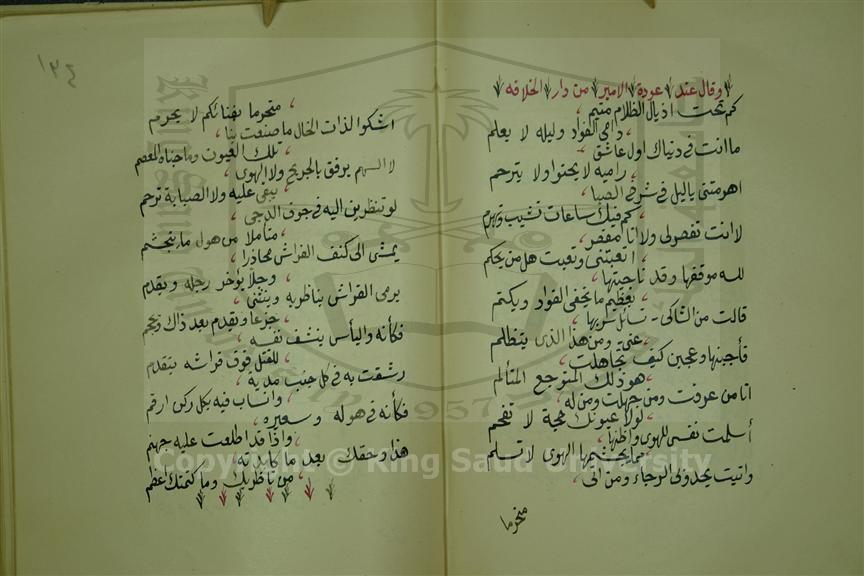 وقال عند عودة الامير من دار الخلافه
كم تحت اذيال الظلام متيم
دامى الفواد وليله لا يعلم
ما انت فى دنياك اول عاشق
راميه لا يحنوا ولا يترحم
اهرمتنى ياليل فى شرخ الصبا
كم فيك ساعات تشيب وتهرم
لا انت تقصر لى ولا انا مقصر
اتعبتنى وتعبت هل من يحكم
لله موقفها وقد ناجيتها
بعظيم ما يخفى الفواد ويكتم
قالت من الشاكى تسائل سربها
عنى ومن هذا الذى يتظلم
فأجبنها وعجبن كيف تجاهلت
هو ذلك المتوجع المتألم
انا من عرفت ومن جهلت ومن له
لولا عيونك حجة لا تفحم
أسلمت نفسى للهوى واظنها
مما يجشمها الهوى لا تسلم
واتيت يحدو بى الرجاء ومن اتى
متحرما
١٣٤
متحرما بفنائكم لا يحرم
اشكوا لذات الخال ما صنعت بنا
تلك العيون وما جناه المعصم
لا السهم يرفق بالجريح ولا الهوى
يبقى عليه ولا الصبابة ترحم
لو تنظرين اليه فى جوف الدجى
متأملا من هول ما يتجشم
يمشى الى كنف الفراش محاذرا
وجلا يؤخر رجله ويقدم
يرمى الفراش بناظريه وينثنى
جزعا ويقدم بعد ذاك ويحجم
فكأنه واليأس ينشف نفسه
للقتل فوق فراشه يتقدم
رشقت به فى كل جنب مدية
وانساب فيه بكل ركن ارقم
فكأنه فى هوله وسعيره
واذ قد اطلعت عليه جهنم
هذا وحقك بعد ما كابدته
من ناظريك وما كتمتك اعظم
Copyright © King Saud University
1957